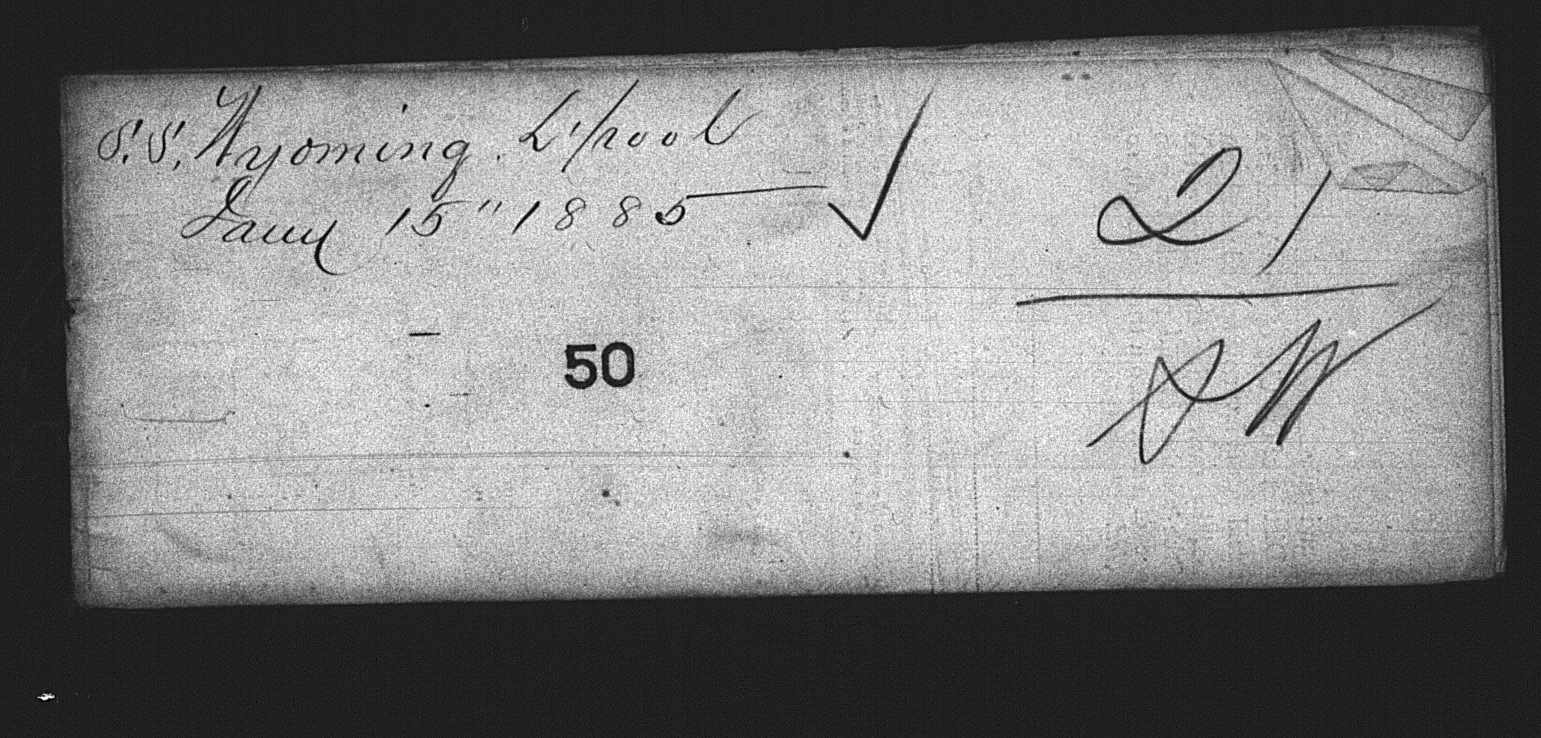 S.S. Wyoming. L'pool
Jany 15" 1885 ✓
2/
50